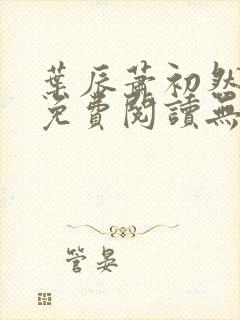 葉辰蕭初然
免費閱讀無
管晏